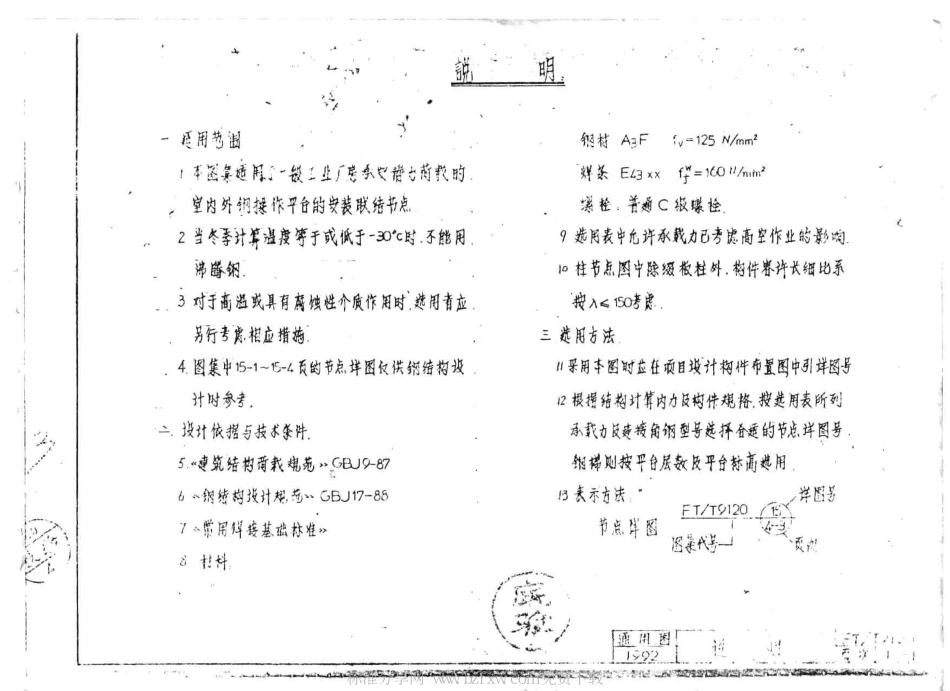 説 明
一 适用范围
1 本图集适用于一般工业厂房承受静力荷载的
室内外钢操作平台的安装联结节点
2 当冬季计算温度等于或低于-30°c时.不能用
沸腾钢.
3 对于高温或具有腐蚀性介质作用时.选用者应
另行考虑相应措施.
4. 图集中15-1~15-4页的节点详图仅供钢结构设
计时参考.
二. 设计依据与技术条件.
5.《建筑结构荷载规范》GBJ9-87
6 《钢结构设计规范》GBJ17-88
7 《常用焊接基础标准》
8 材料
钢材 A3F fv=125 N/mm²
焊条 E43xx =160 N/mm²
螺栓. 普通C级螺栓.
9 选用表中允许承载力已考虑高空作业的影响.
10 柱节点图中除缀板柱外.构件容许长细比系
按λ≤150考虑.
三 选用方法.
11 采用本图时应在项目设计构件布置图中引详图号
12 根据结构计算内力及构件规格.按选用表所列
承载力及连接角钢型号选择合适的节点详图号.
钢梯则按平台层数及平台标高选用.
13 表示方法.
详图号
FT/T9120 15
节点详图 6-3
图集代号 页次
通用图
1992
说 明
标准分享网 www.bzfxw.com 免费下载